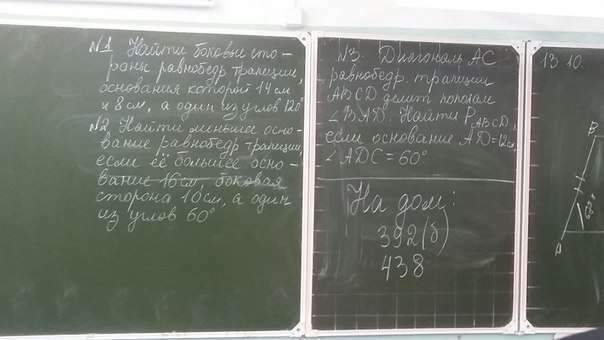 №1 Найти боковые сто-
роны равнобедр трапеции,
основания которой 14 см
и 8 см, а один из углов 120°
№2 Найти меньшее осно-
вание равнобедр трапеции,
если её большее осно-
вание 16 см, боковая
сторона 10 см, а один
из углов 60°
№3. Диагональ AC
равнобедр. трапеции
ABCD делит пополам
∠BAD. Найти P ABCD,
если основание AD=12см,
∠ADC = 60°
На дом:
392(б)
438
13.10.
B